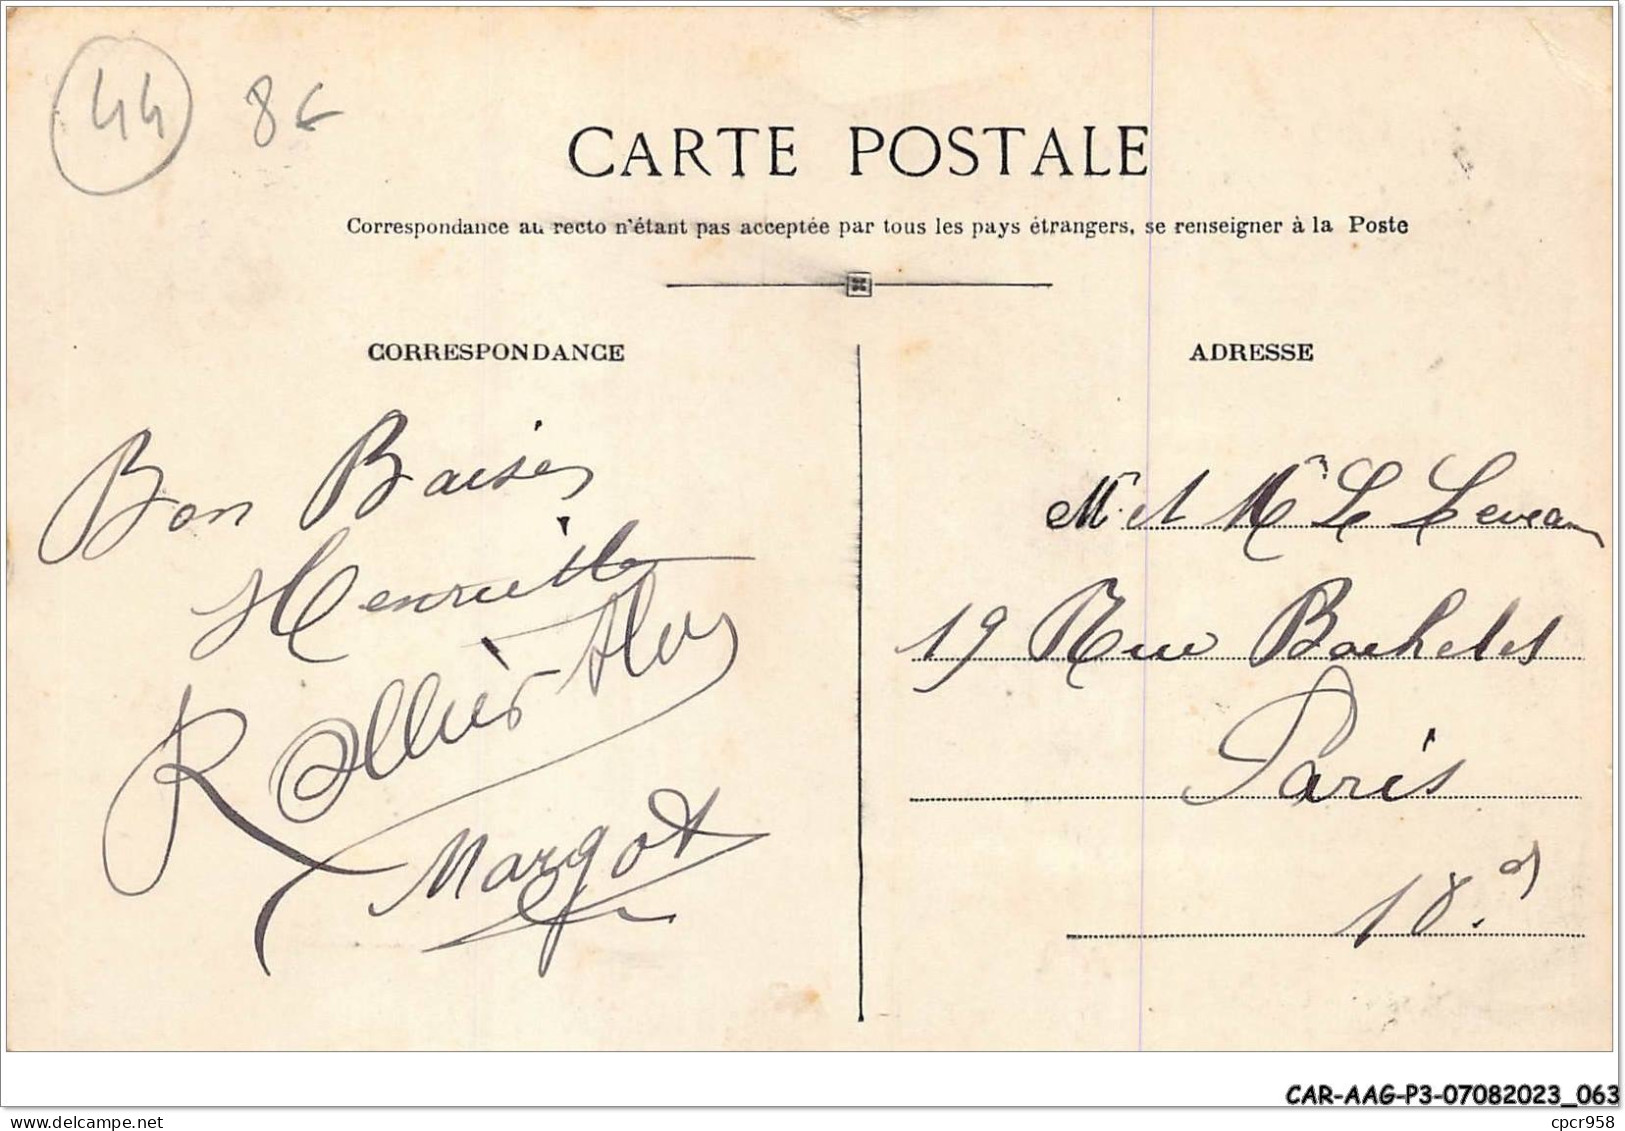 44 8€
CARTE POSTALE
Correspondance au recto n'étant pas acceptée par tous les pays étrangers, se renseigner à la Poste
CORRESPONDANCE
ADRESSE
Bon Baisers
Henriette
Margot
Mr et Mme Le
19 Rue Bachelet
Paris
18.e
CAR-AAG-P3-07082023_063
cpcr958